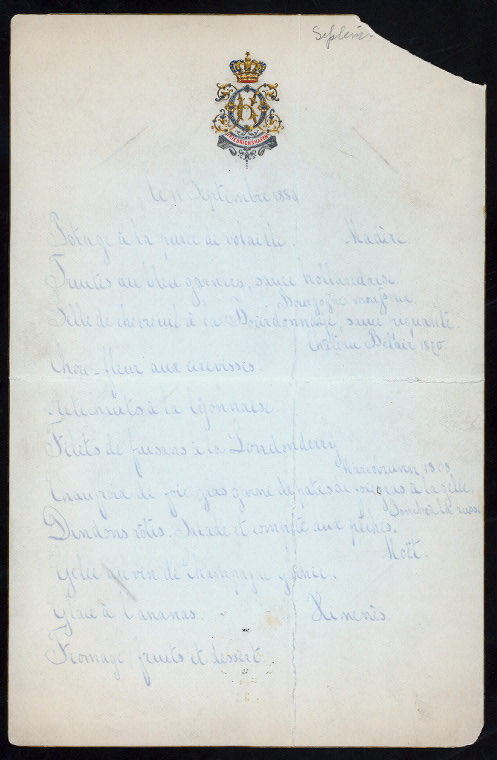 FRIEDRICHSHAFEN
le 11 Septembre 1889
Potage à la purée de volaille. Madère
Truites au bleu garnies, sauce hollandaise
Bourgogne mousseux
Selle de chevreuil à la Bourdonnaye, sauce piquante.
Château Bellair 1870.
Chou-fleur aux écrevisses.
Artichauts à la lyonnaise.
Filets de faisans à la Londonderry
1868
Chaufroix de foie gras garni de pâtés de foie gras à la gelée,
Dindons rôtis. Salade et compote aux pêches.
Moët.
Gelée au vin de Champagne garnie.
Glace à l'ananas. Xérenès.
Fromage fruits et dessert